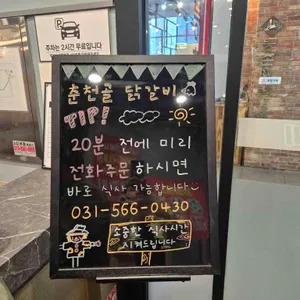 주차는 2시간 무료입니다
춘천골 닭갈비
TIP!
20분 전에 미리
전화주문 하시면
바로 식사 가능합니다
031-566-0430
소중한 식사시간
지켜드립니다